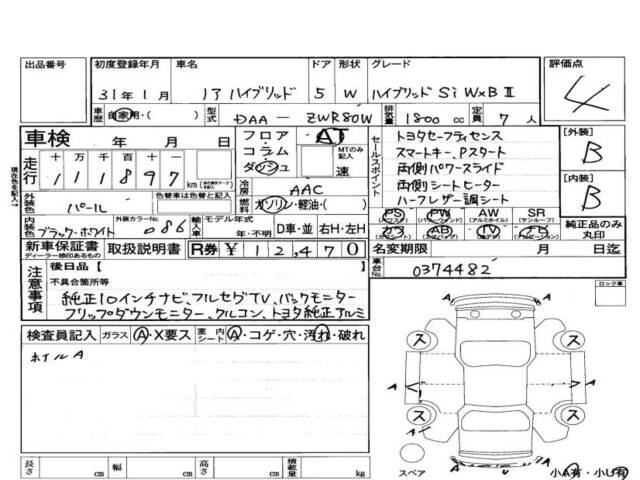 出品番号
初度登録年月 車名 ドア 形状 グレード 評価点
31年1月 ハイブリッド 5 W ハイブリッド Si W×B Ⅱ 4
車歴 自家用・( ) 型式 DAA - ZWR80W 排気量 1800 cc 定員 7 人
車検 年 月 日 フロア コラム ダッシュ AT MTのみ記入 速
セールスポイント
トヨタセーフティセンス
スマートキー、Pスタート
両側パワースライド
両側シートヒーター
ハーフレザー調シート
[外装] B
[内装] B
現在色を記入→
走行 十万 千 百 十 一
111897 km
冷房 AAC
外装色 パール 色替車は色替と元色を記入 燃料 ガソリン・軽油・( )
内装色 ブラック・ホワイト 外装カラーNo. 086 輸入車 モデル年式 年・不明 D車・並 右H・左H
PS (パワステ) PW (パワーウインド) AW (アルミホイル) SR (サンルーフ)
カワ (カワシート) AB (エアバッグ) TV (テレビ) ナビ (ナビゲーション)
純正品のみ丸印
新車保証書 ディーラー検印あるもの 取扱説明書 R券 ¥ 12,470
名変期限 月 日
注意事項
後日品[ ]
不具合箇所等
純正10インチナビ、フルセグTV、バックモニター
フリップダウンモニター、クルコン、トヨタ純正アルミ
車台No. 0374482
ロック車
検査員記入 ガラス A・X要ス 室内シート A・コゲ・穴・汚れ・破れ
ホイルA
ス ス
A A A
ス ス
A A
スペア A 小A有・小U有
長さ cm 幅 cm 高さ cm 積載量 kg